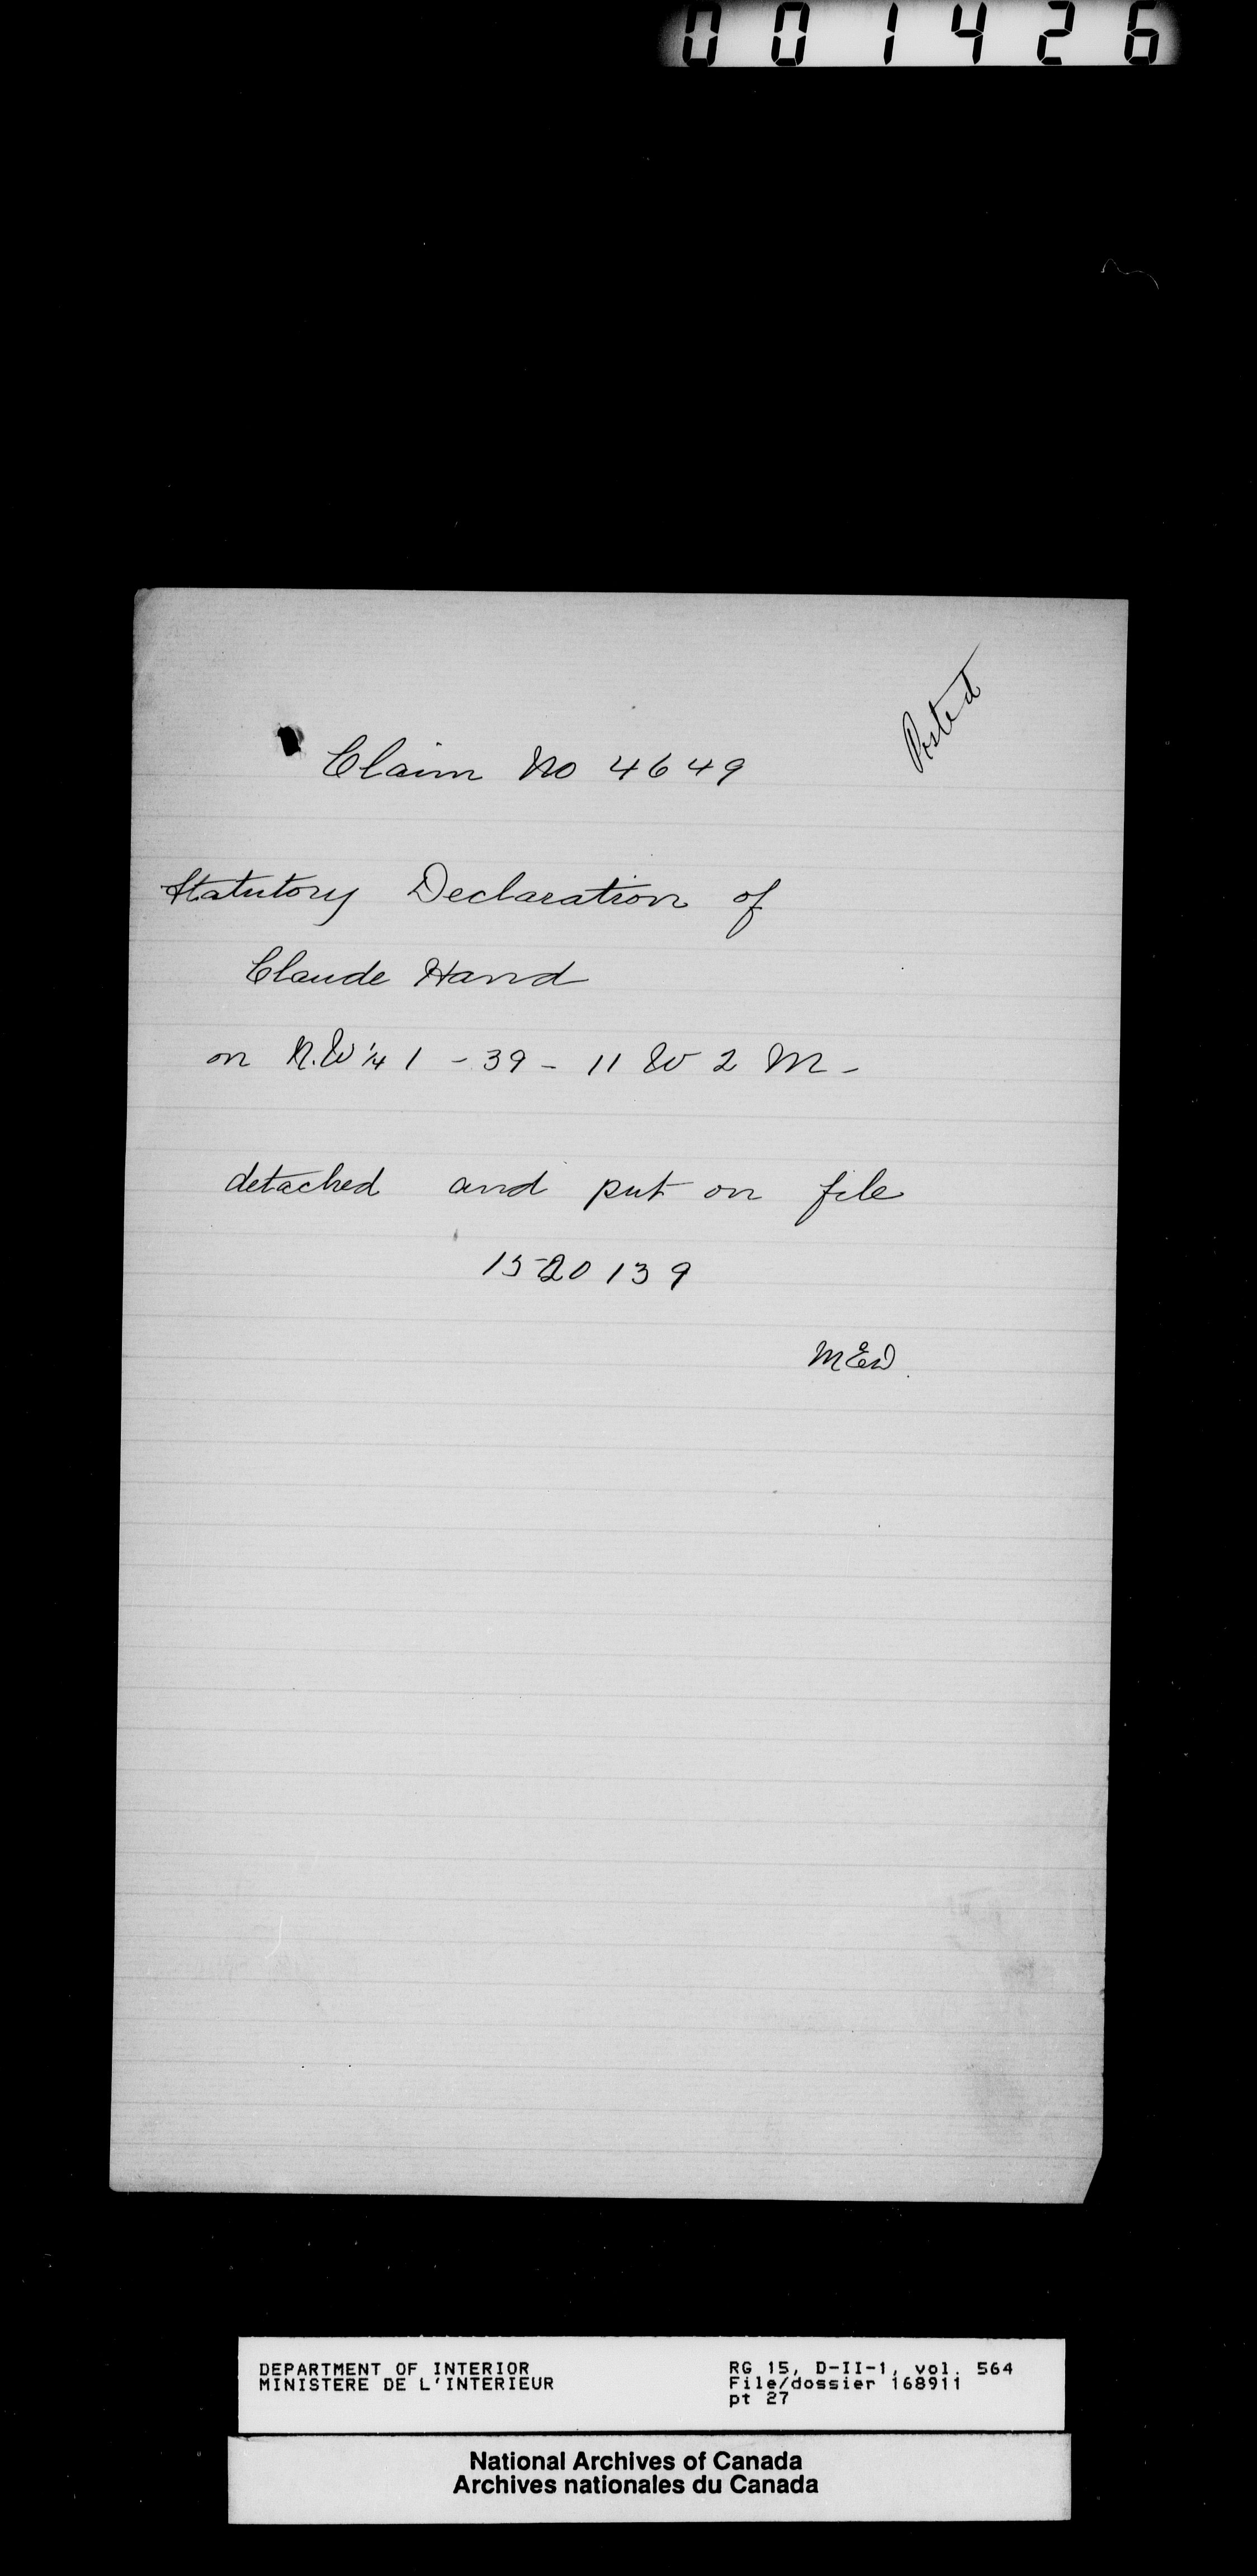 001426
Posted
Claim No 4649
Statutory Declaration of
Claude Hand
on N.W 1/4 1 - 39 - 11 W 2 M -
detached and put on file
1520139
MED.
DEPARTMENT OF INTERIOR
MINISTERE DE L'INTERIEUR
RG 15, D-II-1, vol. 564
File/dossier 168911
pt 27
National Archives of Canada
Archives nationales du Canada